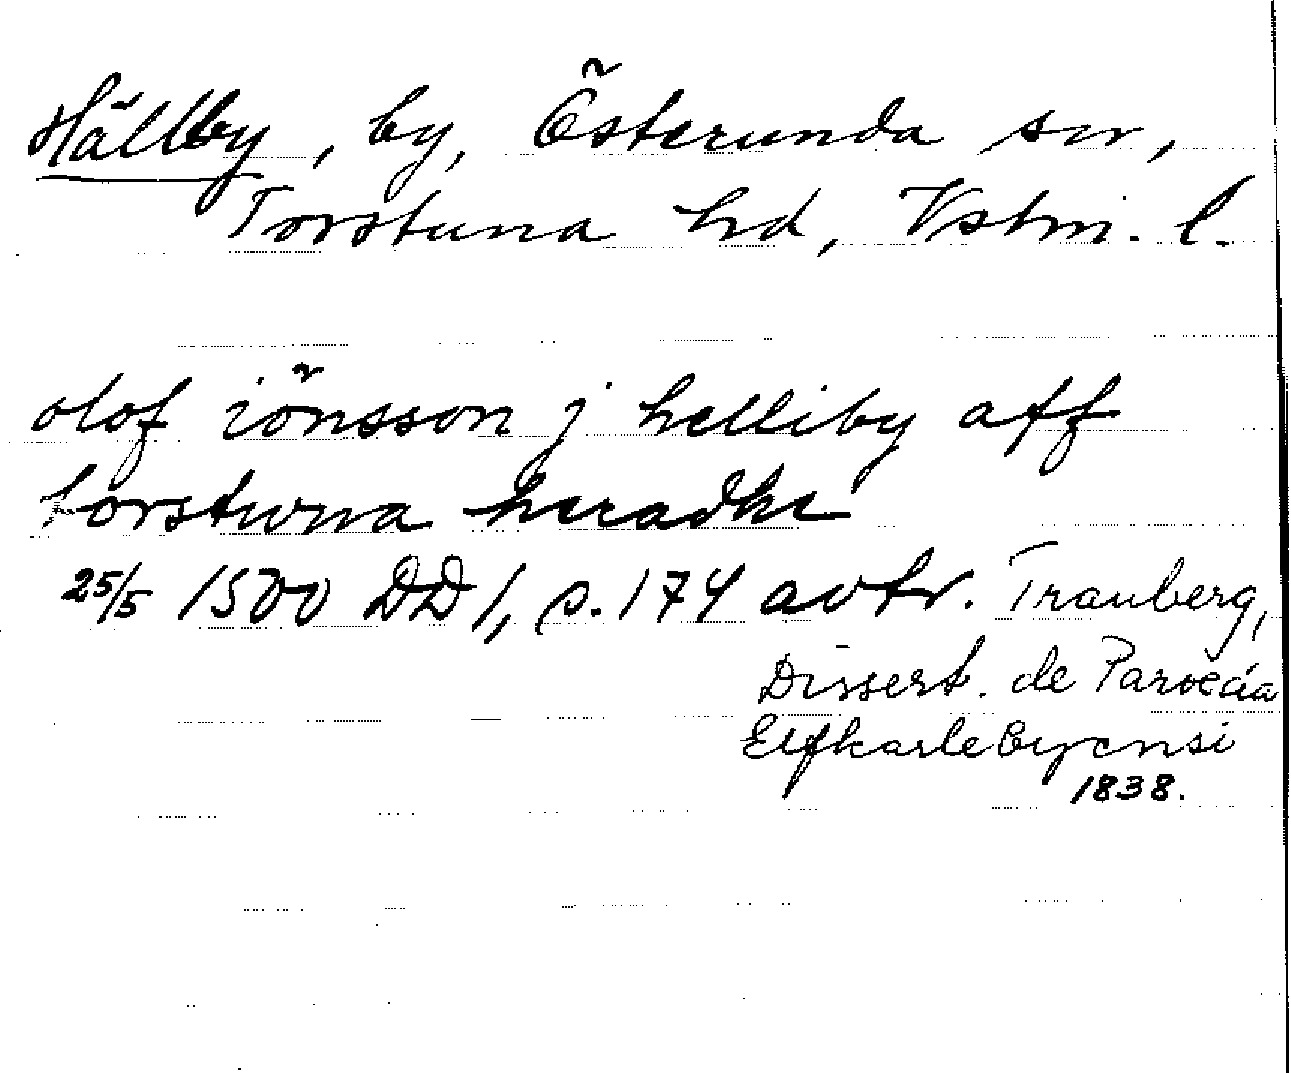 Hällby, by, Österunda sn,
Torstuna hd, Vstm. l.
olof iönsson j helliby aff
torstwna heradhe
25/5 1500 DD 1, s. 174 avtr. Tranberg,
Dissert. de Paroecia
Elfkarlebyensi
1838.